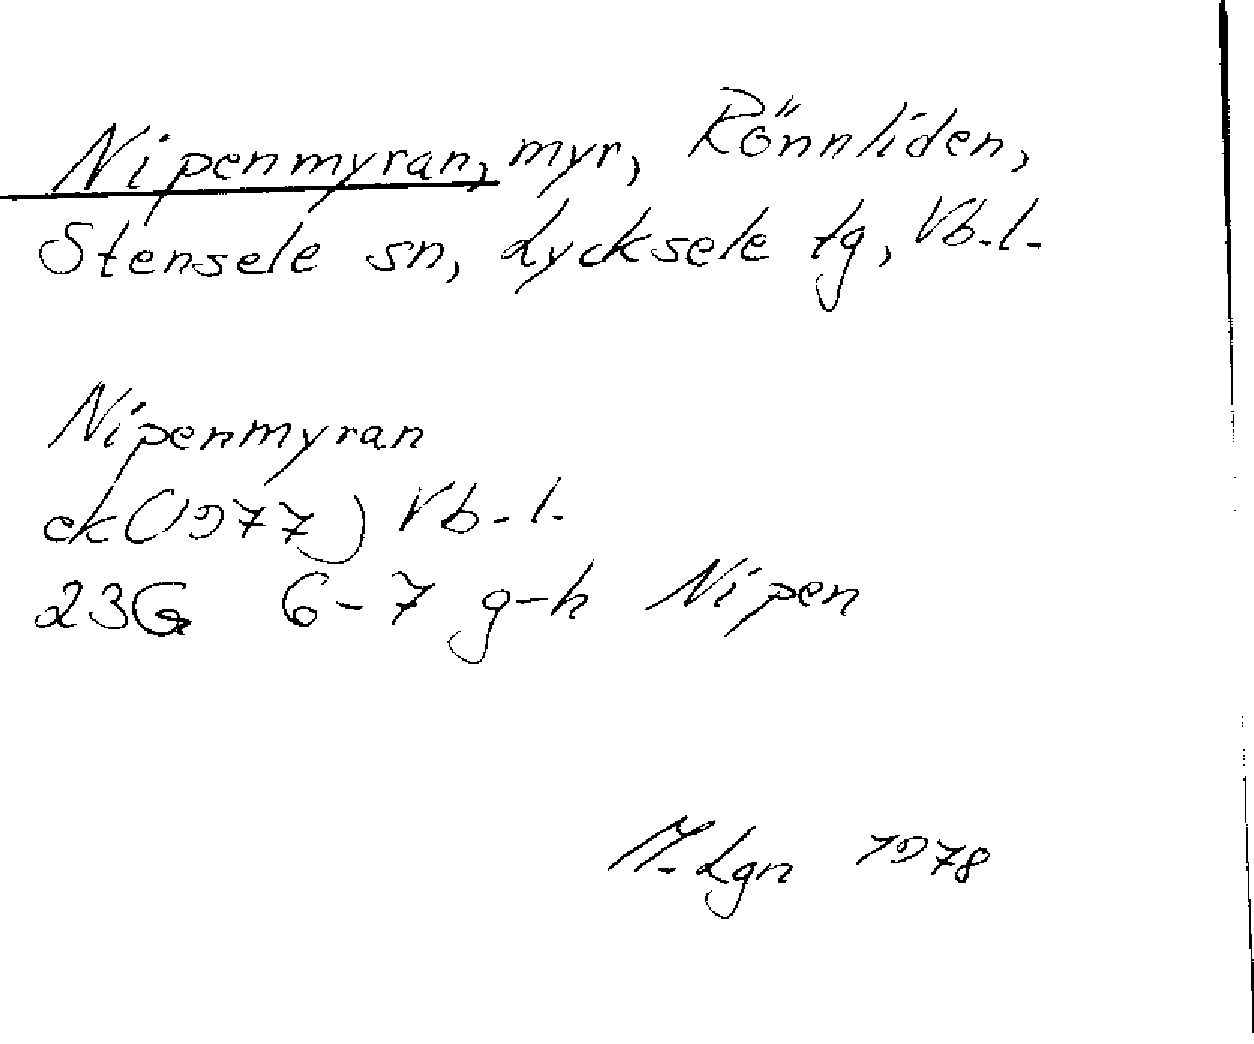 Nipenmyran, myr, Rönnliden,
Stensele sn, Lycksele tg, Vb-l-
Nipenmyran
ek (1977) Vb-l-
23G 6-7 g-h Nipen
M-Lgn 1978